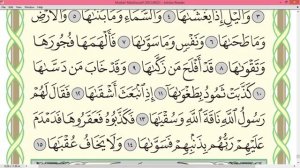 ٣ وَٱلَّيْلِ إِذَا يَغْشَىٰهَا ٤ وَٱلسَّمَآءِ وَمَا بَنَىٰهَا ٥ وَٱلْأَرْضِ
وَمَا طَحَىٰهَا ٦ وَنَفْسٍ وَمَا سَوَّىٰهَا ٧ فَأَلْهَمَهَا فُجُورَهَا
وَتَقْوَىٰهَا ٨ قَدْ أَفْلَحَ مَن زَكَّىٰهَا ٩ وَقَدْ خَابَ مَن دَسَّىٰهَا
١٠ كَذَّبَتْ ثَمُودُ بِطَغْوَىٰهَآ ١١ إِذِ ٱنۢبَعَثَ أَشْقَىٰهَا ١٢ فَقَالَ لَهُمْ
رَسُولُ ٱللَّهِ نَاقَةَ ٱللَّهِ وَسُقْيَٰهَا ١٣ فَكَذَّبُوهُ فَعَقَرُوهَا فَدَمْدَمَ
عَلَيْهِمْ رَبُّهُم بِذَنۢبِهِمْ فَسَوَّىٰهَا ١٤ وَلَا يَخَافُ عُقْبَٰهَا ١٥